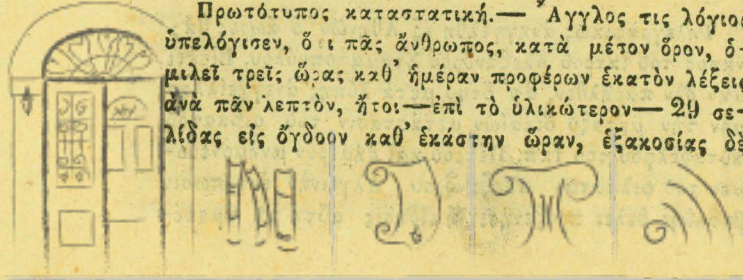 Πρωτότυπος καταστατική.— Ἄγγλος τις λόγιος
ὑπελόγισεν, ὅ ι πᾶς ἄνθρωπος, κατὰ μέτον ὅρον, ὁ-
μιλεῖ τρεῖς ὥρας καθ' ἡμέραν προφέρων ἑκατὸν λέξεις
ἀνὰ πᾶν λεπτὸν, ἤτοι—ἐπὶ τὸ ὑλικώτερον— 29 σε-
λίδας εἰς ὄγδοον καθ' ἑκάστην ὥραν, ἑξακοσίας δὲ